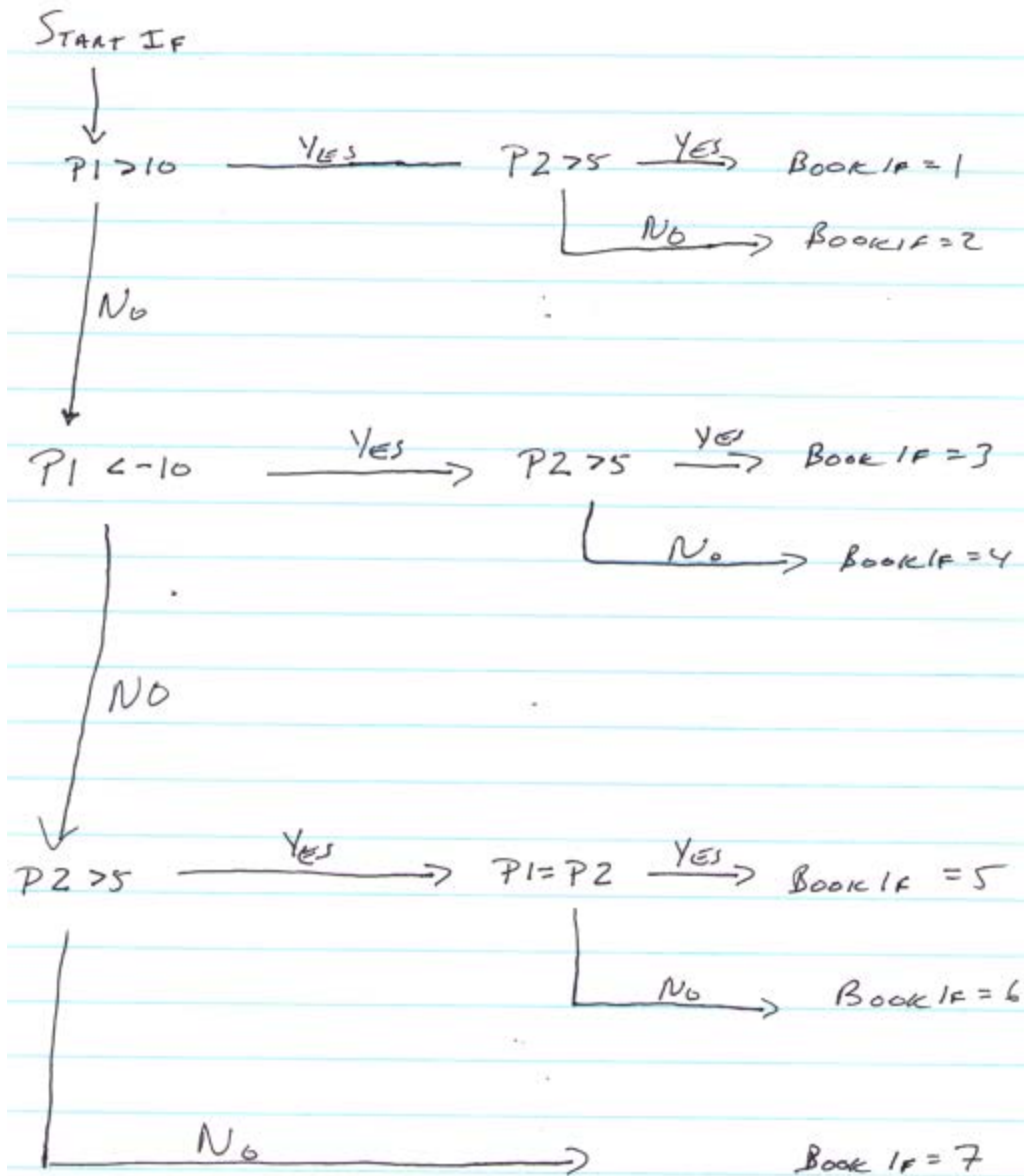 START IF
P1 > 10 YES P2 > 5 YES BOOK IF = 1
NO BOOK IF = 2
NO
P1 < -10 YES P2 > 5 YES BOOK IF = 3
NO BOOK IF = 4
NO
P2 > 5 YES P1 = P2 YES BOOK IF = 5
NO BOOK IF = 6
NO BOOK IF = 7